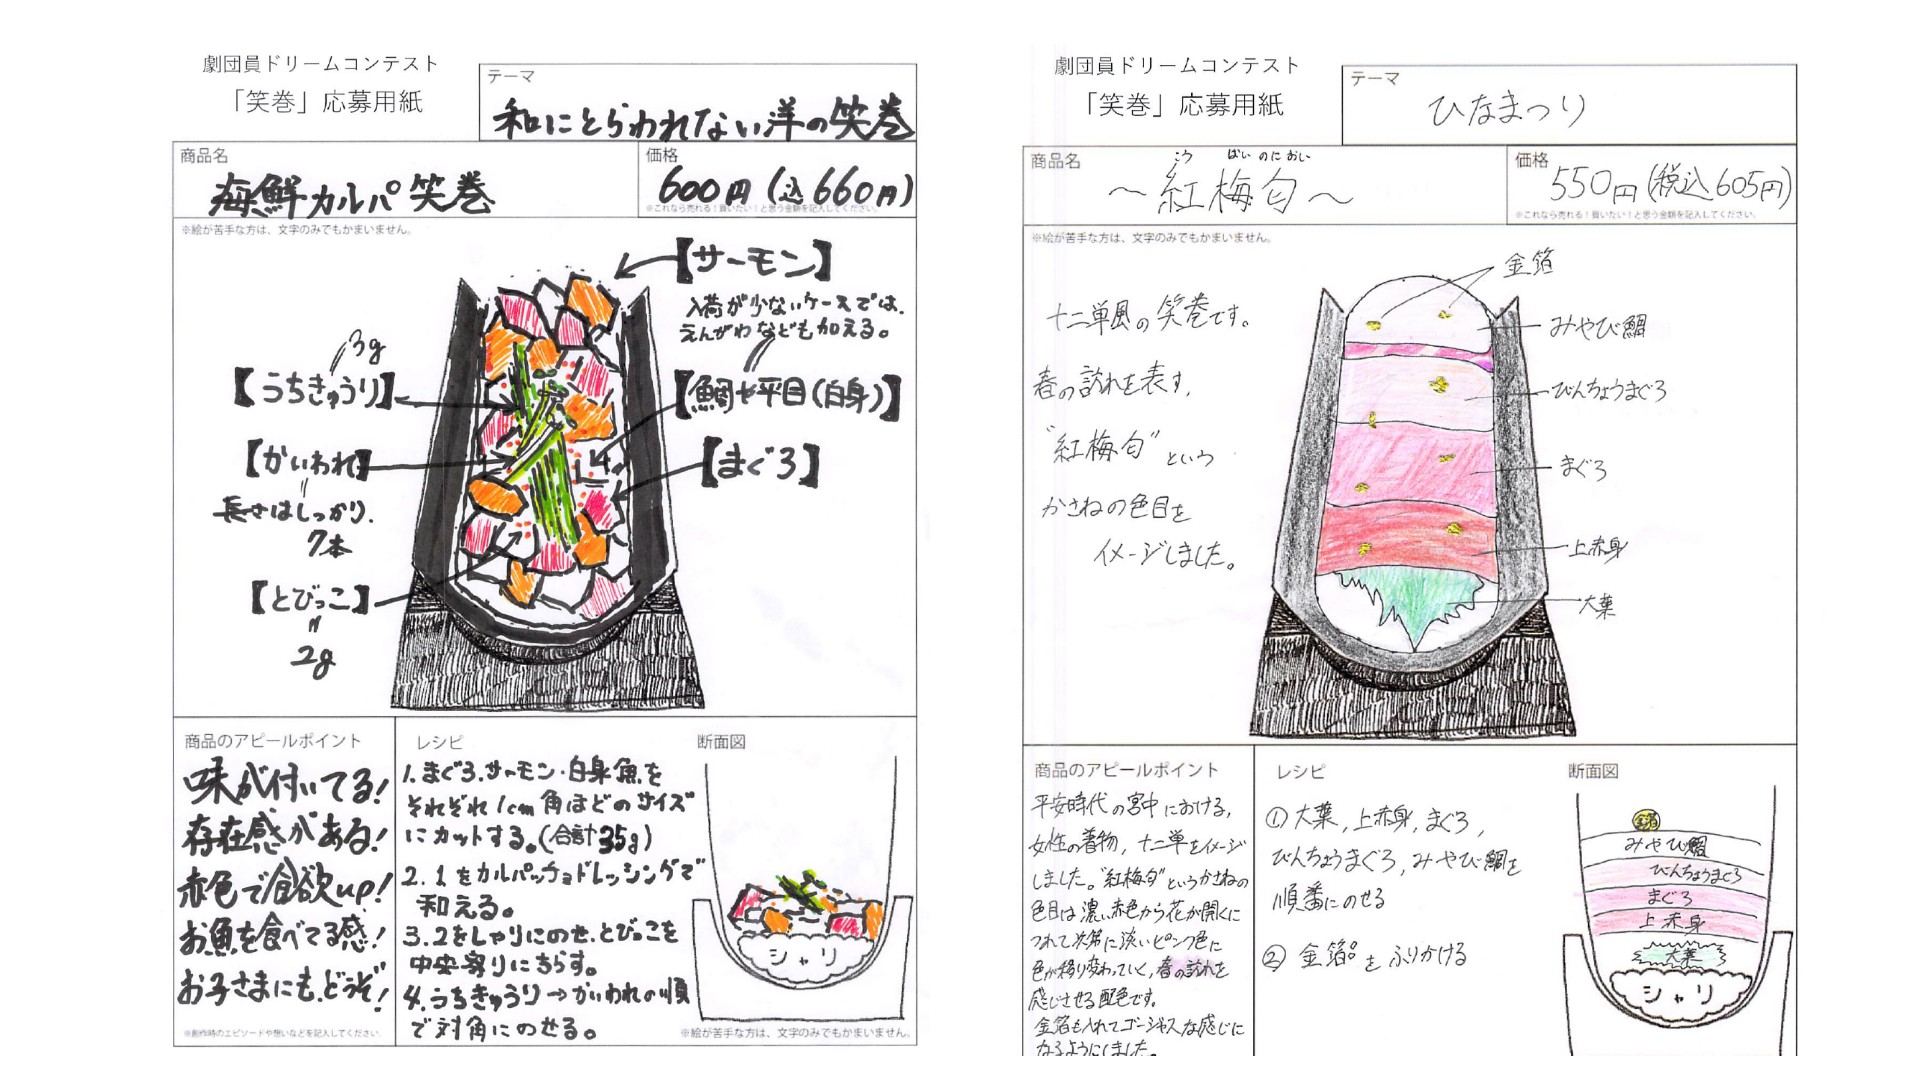 劇団員ドリームコンテスト
「笑巻」応募用紙
テーマ
和にとらわれない洋の笑巻
商品名
海鮮カルパ笑巻
価格
600円(込660円)
※これなら売れる！買いたい！と思う金額を記入してください。
※絵が苦手な方は、文字のみでもかまいません。
【サーモン】
入荷が少ないケースでは、
えんがわなども加える。
3g
【うちきゅうり】
【鯛や平目(白身)】
【かいわれ】
長さはしっかり、
7本
【まぐろ】
【とびっこ】
2g
商品のアピールポイント
味が付いてる!
存在感がある!
赤色で食欲up!
お魚を食べてる感!
お子さまにも、どうぞ!
※創作時のエピソードや想いなどを記入してください。
レシピ
1.まぐろ、サーモン・白身魚を
それぞれ1cm角ほどのサイズ
にカットする。(合計35g)
2.1をカルパッチョドレッシングで
和える。
3.2をしゃりにのせ、とびっこを
中央寄りにちらす。
4.うちきゅうり→かいわれの順
で対角にのせる。
断面図
シャリ
※絵が苦手な方は、文字のみでもかまいません。
劇団員ドリームコンテスト
「笑巻」応募用紙
テーマ
ひなまつり
商品名
こう ばい のに おい
〜紅梅匂〜
価格
550円(税込605円)
※これなら売れる！買いたい！と思う金額を記入してください。
※絵が苦手な方は、文字のみでもかまいません。
十二単風の笑巻です。
春の訪れを表す、
"紅梅匂"という
かさねの色目を
イメージしました。
金箔
みやび鯛
びんちょうまぐろ
まぐろ
上赤身
大葉
商品のアピールポイント
平安時代の宮中における、
女性の着物、十二単をイメージ
しました。"紅梅匂"というかさねの
色目は濃い赤色から花が開くに
つれて次第に淡いピンク色に
色が移り変わっていく、春の訪れを
感じさせる配色です。
金箔も入れてゴージャスな感じに
なるようにしました。
レシピ
①大葉、上赤身、まぐろ、
びんちょうまぐろ、みやび鯛を
順番にのせる
②金箔をふりかける
断面図
金箔
みやび鯛
びんちょうまぐろ
まぐろ
上赤身
大葉
シャリ